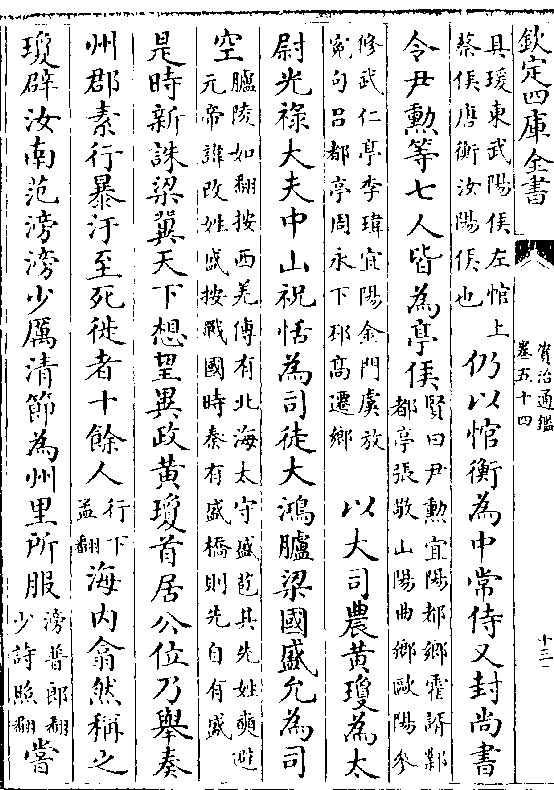 欽定四庫全書
資治通鑑
卷五十四
十三
具瑗東武陽侯左悺上
蔡侯唐衡汝陽侯也
仍以悺衡為中常侍又封尚書
令尹勲等七人皆為亭侯
賢曰尹勲宜陽都鄉霍諝鄴
都亭張敬山陽曲鄉歐陽參
修武仁亭李瑋宜陽金門虞放
寃句呂都亭周永下邳高遷鄉
以大司農黄瓊為太
尉光祿大夫中山祝恬為司徒大鴻臚梁國盛允為司
空
臚陵如翻按西羌傳有北海太守盛苞其先姓奭避
元帝諱改姓盛按戰國時秦有盛橋則先自有盛
是時新誅梁冀天下想望異政黄瓊首居公位乃舉奏
州郡素行暴汙至死徙者十餘人
行下
孟翻
海内翕然稱之
瓊辟汝南范滂滂少厲清節為州里所服
滂普郎翻
少詩照翻
嘗